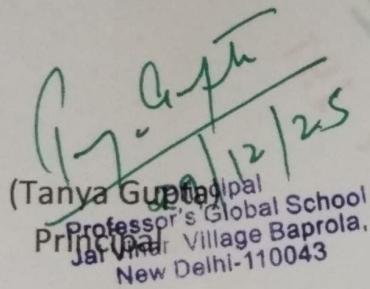 29/12/25
(Tanya Gupta)
Principal
Principal
Professor's Global School
Jai Vihar Village Baprola,
New Delhi-110043